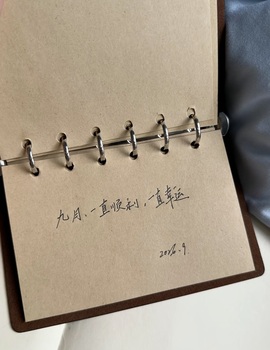 九月、一直顺利，一直幸运
2026.9